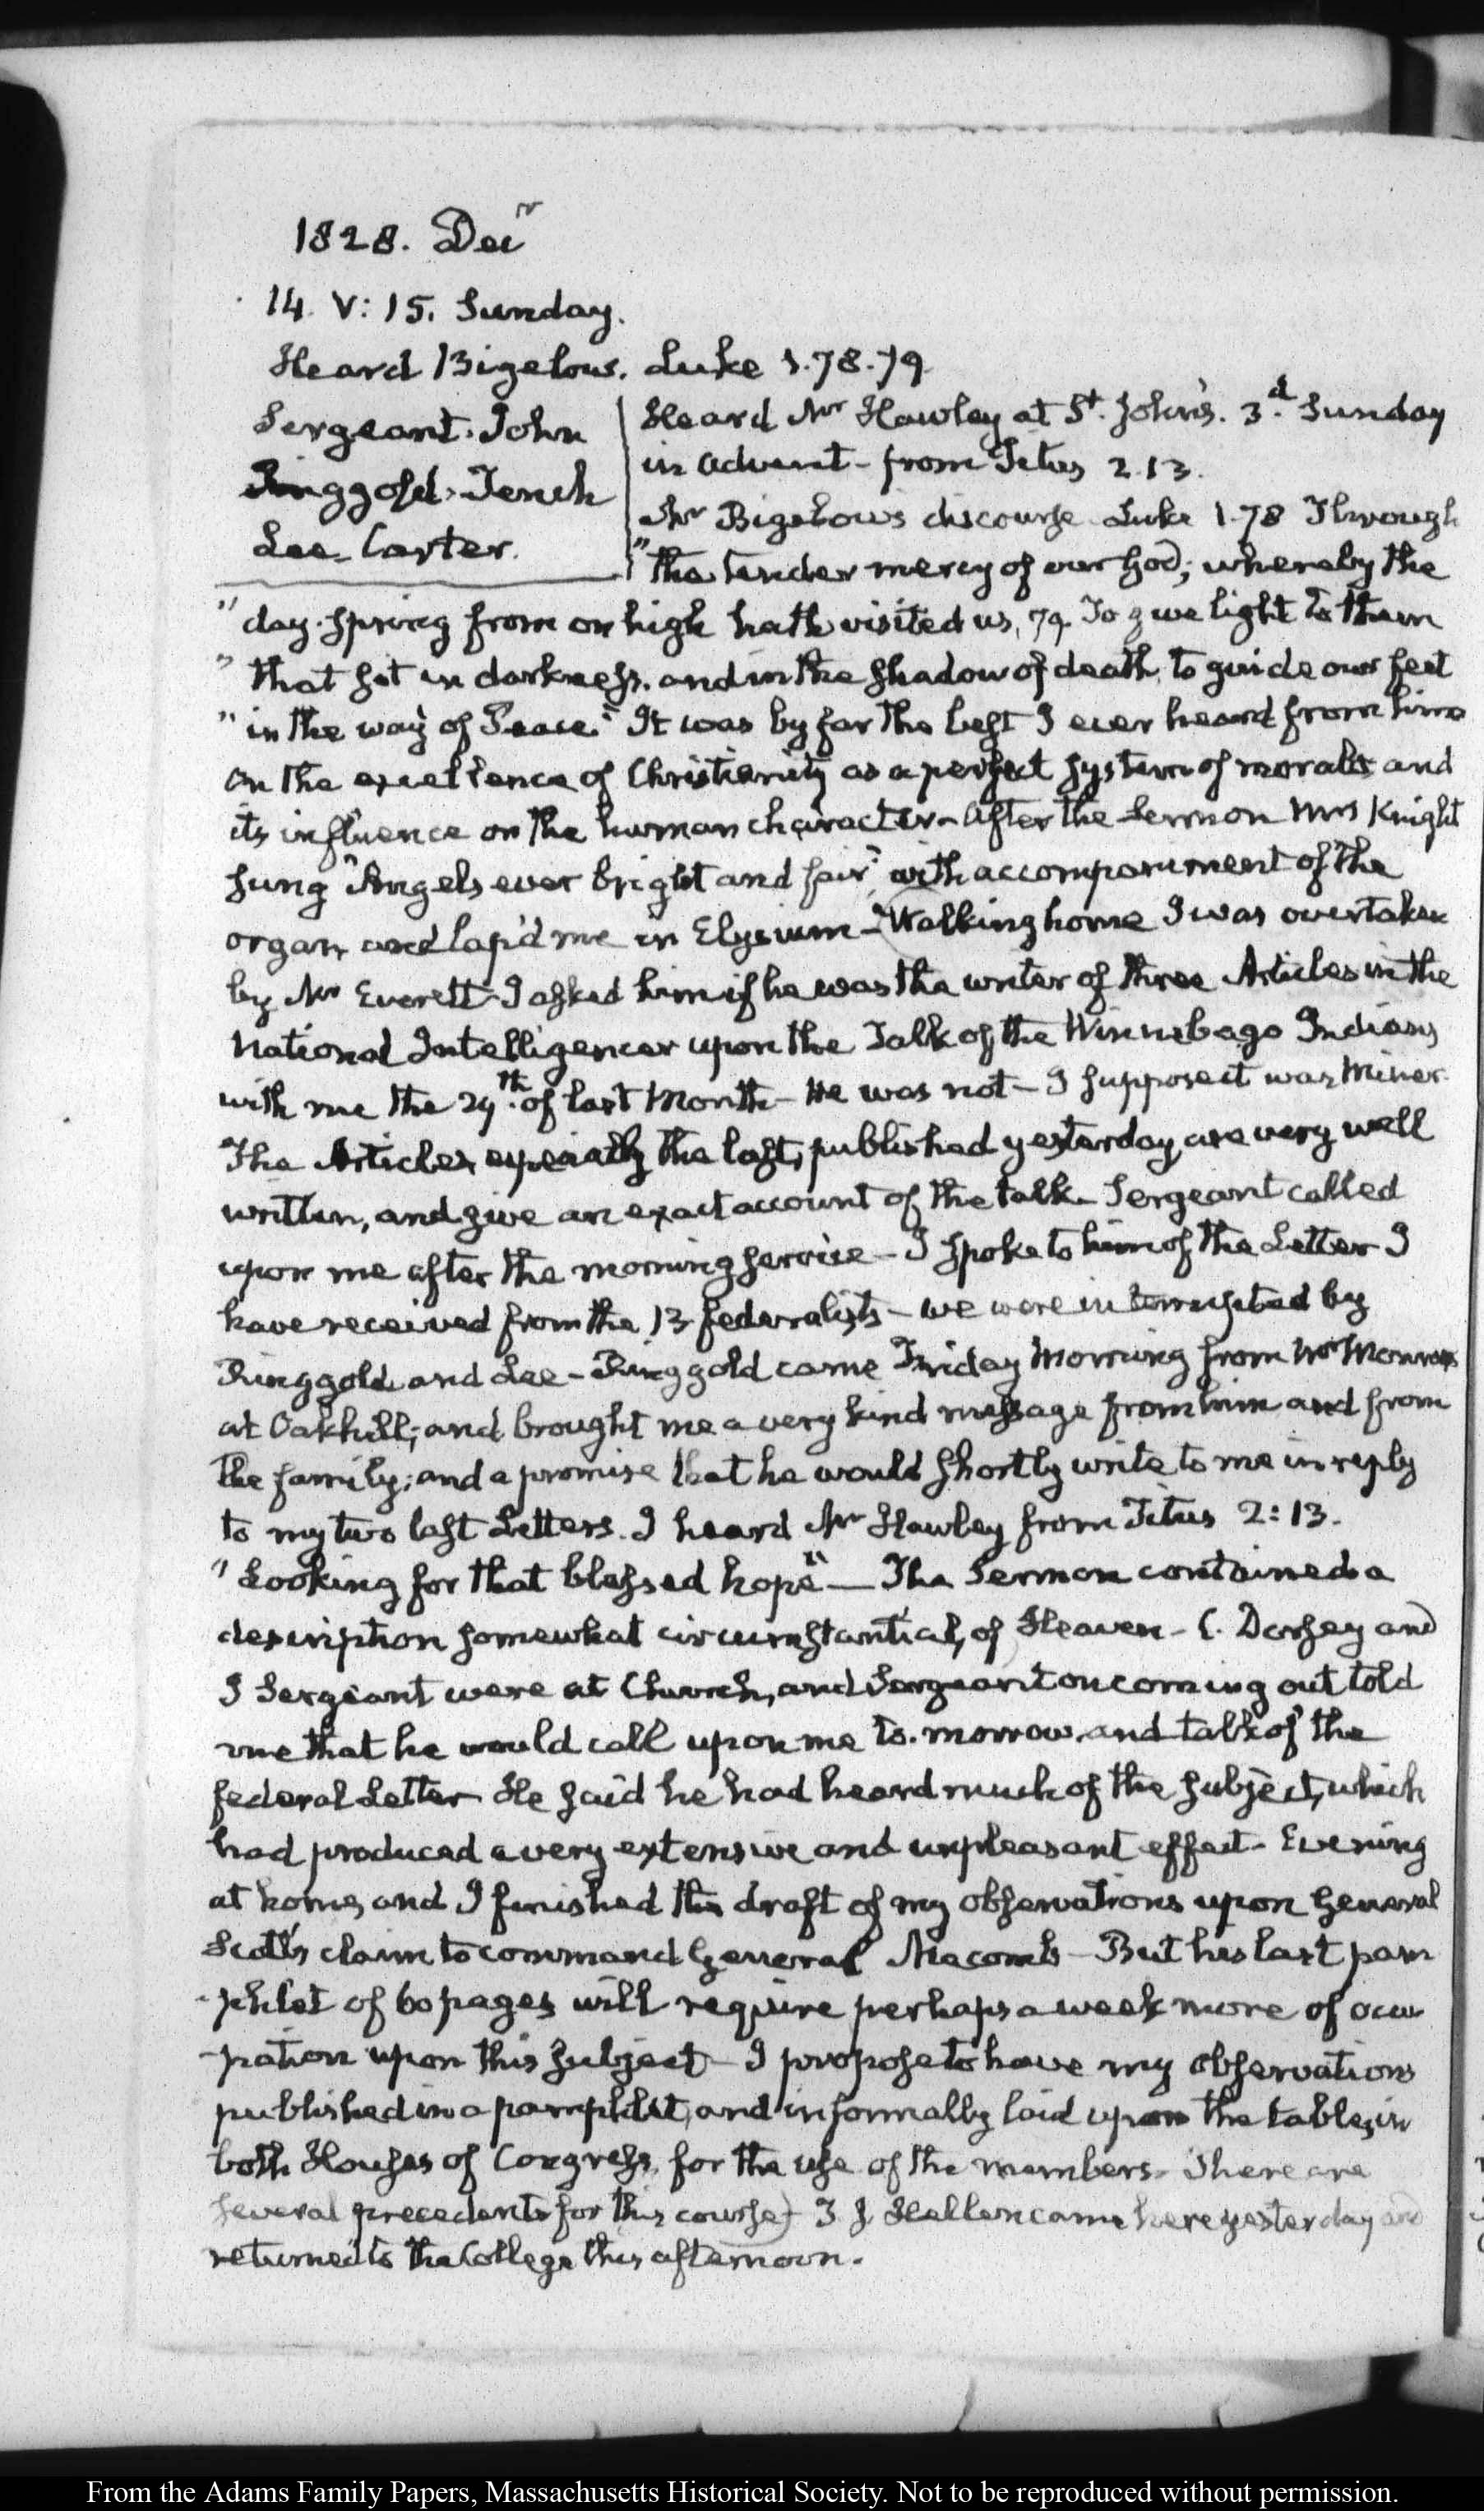 1828. Decr
14. V: 15. Sunday.
Heard Bigelow. Luke 1.78.79
Sergeant. John
Ringgold. Tench
Lee. Carter.
Heard Mr Hawley at St. John's. 3d. Sunday
in advent - from Titus 2.13.
Mr Bigelow's discourse Luke 1.78 Through
"the tender mercy of our God; whereby the
"day-spring from on high hath visited us, 79. To give light to them
"that sit in darkness, and in the shadow of death, to guide our feet
"in the way of Peace." It was by far the best I ever heard from him
on the excellence of Christianity as a perfect system of morals and
its influence on the human character - After the Sermon Mrs Knight
sung "Angels ever bright and fair" with accompaniment of the
organ and lap'd me in Elysium - Walking home I was overtaken
by Mr Everett - I asked him if he was the writer of three Articles in the
National Intelligencer upon the Talk of the Winnebago Indians
with me the 29th. of last Month - He was not - I suppose it was Miner.
The Articles, especially the last, published yesterday, are very well
written, and give an exact account of the talk - Sergeant called
upon me after the morning service - I spoke to him of the Letter I
have received from the 13 federalists - we were interrupted by
Ringgold and Lee - Ringgold came Friday Morning from Mr Monroe's
at Oakhill; and brought me a very kind message from him and from
the family; and a promise that he would shortly write to me in reply
to my two last Letters. I heard Mr Hawley from Titus 2:13.
"Looking for that blessed hope" - The Sermon contained a
description somewhat circumstantial, of Heaven - C. Dorsey and
J Sergeant were at Church, and Sergeant on coming out told
me that he would call upon me to-morrow, and talk of the
federal Letter - He said he had heard much of the subject, which
had produced a very extensive and unpleasant effect - Evening
at home, and I finished the draft of my observations upon General
Scott's claim to command General Macomb - But his last pam
-phlet of 60 pages will require perhaps a week more of occu
-pation upon this subject - I propose to have my observations
published in a pamphlet, and informally laid upon the tables, in
both Houses of Congress, for the use of the members - There are
several precedents for this course) T J. Hellen came here yesterday and
returned to the College this afternoon.
From the Adams Family Papers, Massachusetts Historical Society. Not to be reproduced without permission.